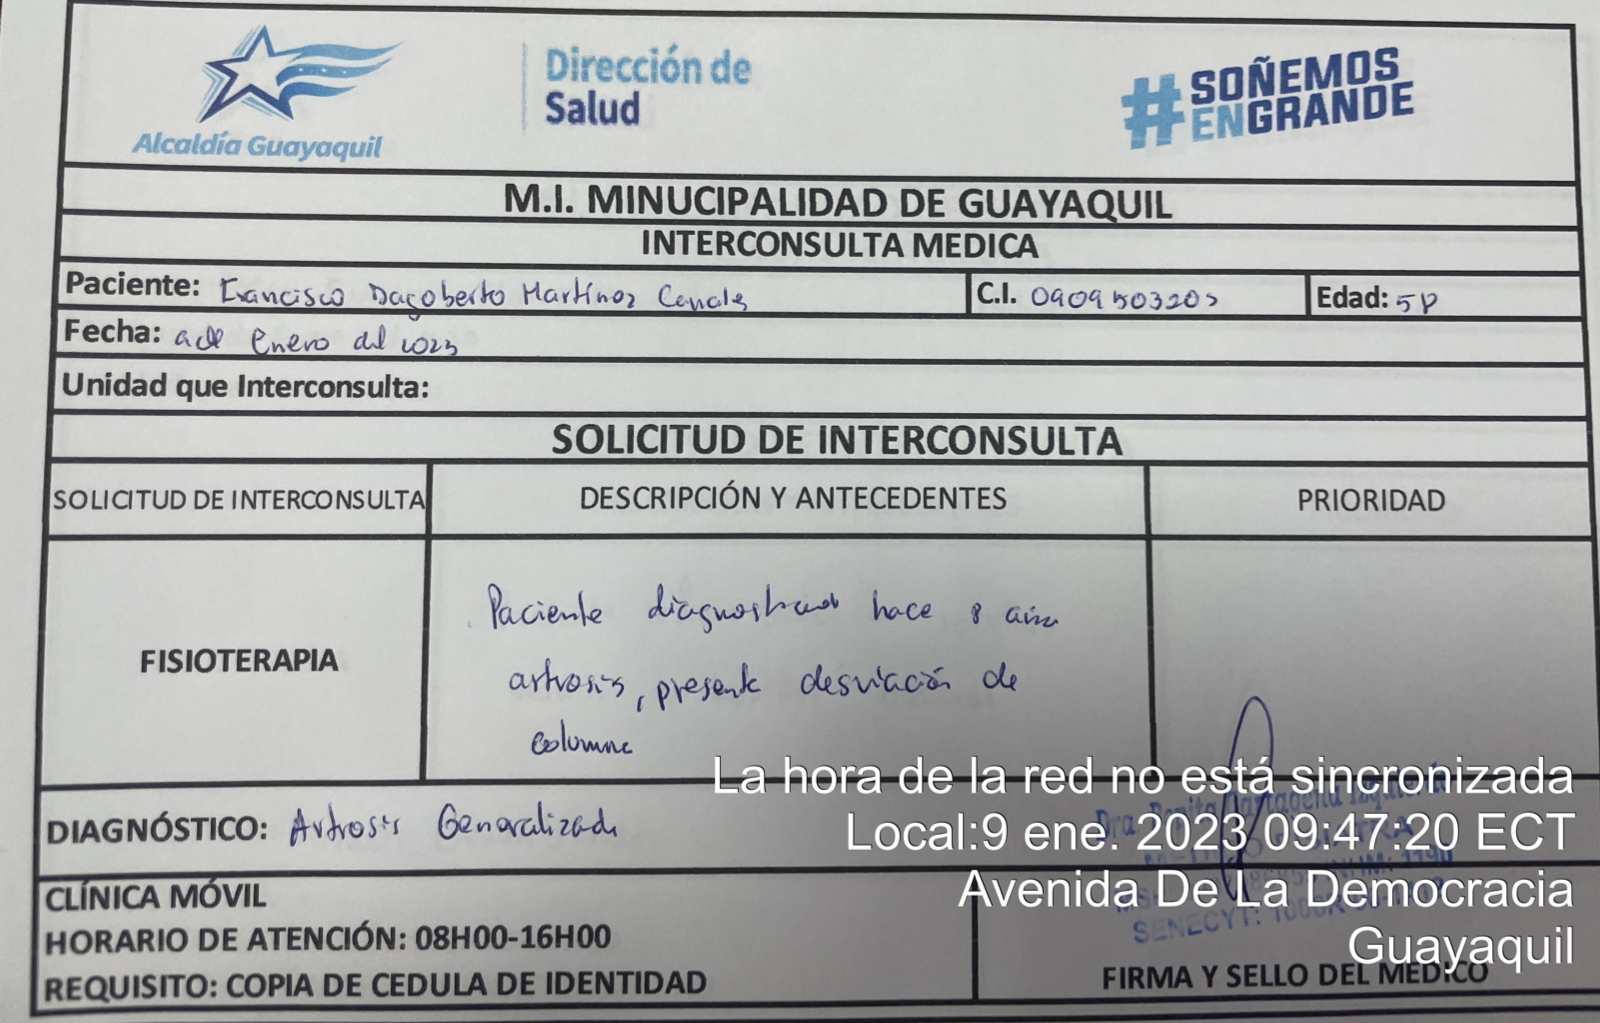 Alcaldía Guayaquil
Dirección de
Salud
#SOÑEMOS
ENGRANDE
M.I. MINUCIPALIDAD DE GUAYAQUIL
INTERCONSULTA MEDICA
Paciente: Francisco Dagoberto Martínez Canales C.I. 0909503205 Edad: 58
Fecha: 9 de Enero del 2023
Unidad que Interconsulta:
SOLICITUD DE INTERCONSULTA
SOLICITUD DE INTERCONSULTA DESCRIPCIÓN Y ANTECEDENTES PRIORIDAD
FISIOTERAPIA
Paciente diagnosticado hace 8 años
artrosis, presenta desviación de
columna
DIAGNÓSTICO: Artrosis Generalizada
Dra. Cartagena Izquierdo
SENECYT:
CLÍNICA MÓVIL
HORARIO DE ATENCIÓN: 08H00-16H00
REQUISITO: COPIA DE CEDULA DE IDENTIDAD
FIRMA Y SELLO DEL MEDICO
La hora de la red no está sincronizada
Local:9 ene. 2023 09:47:20 ECT
Avenida De La Democracia
Guayaquil